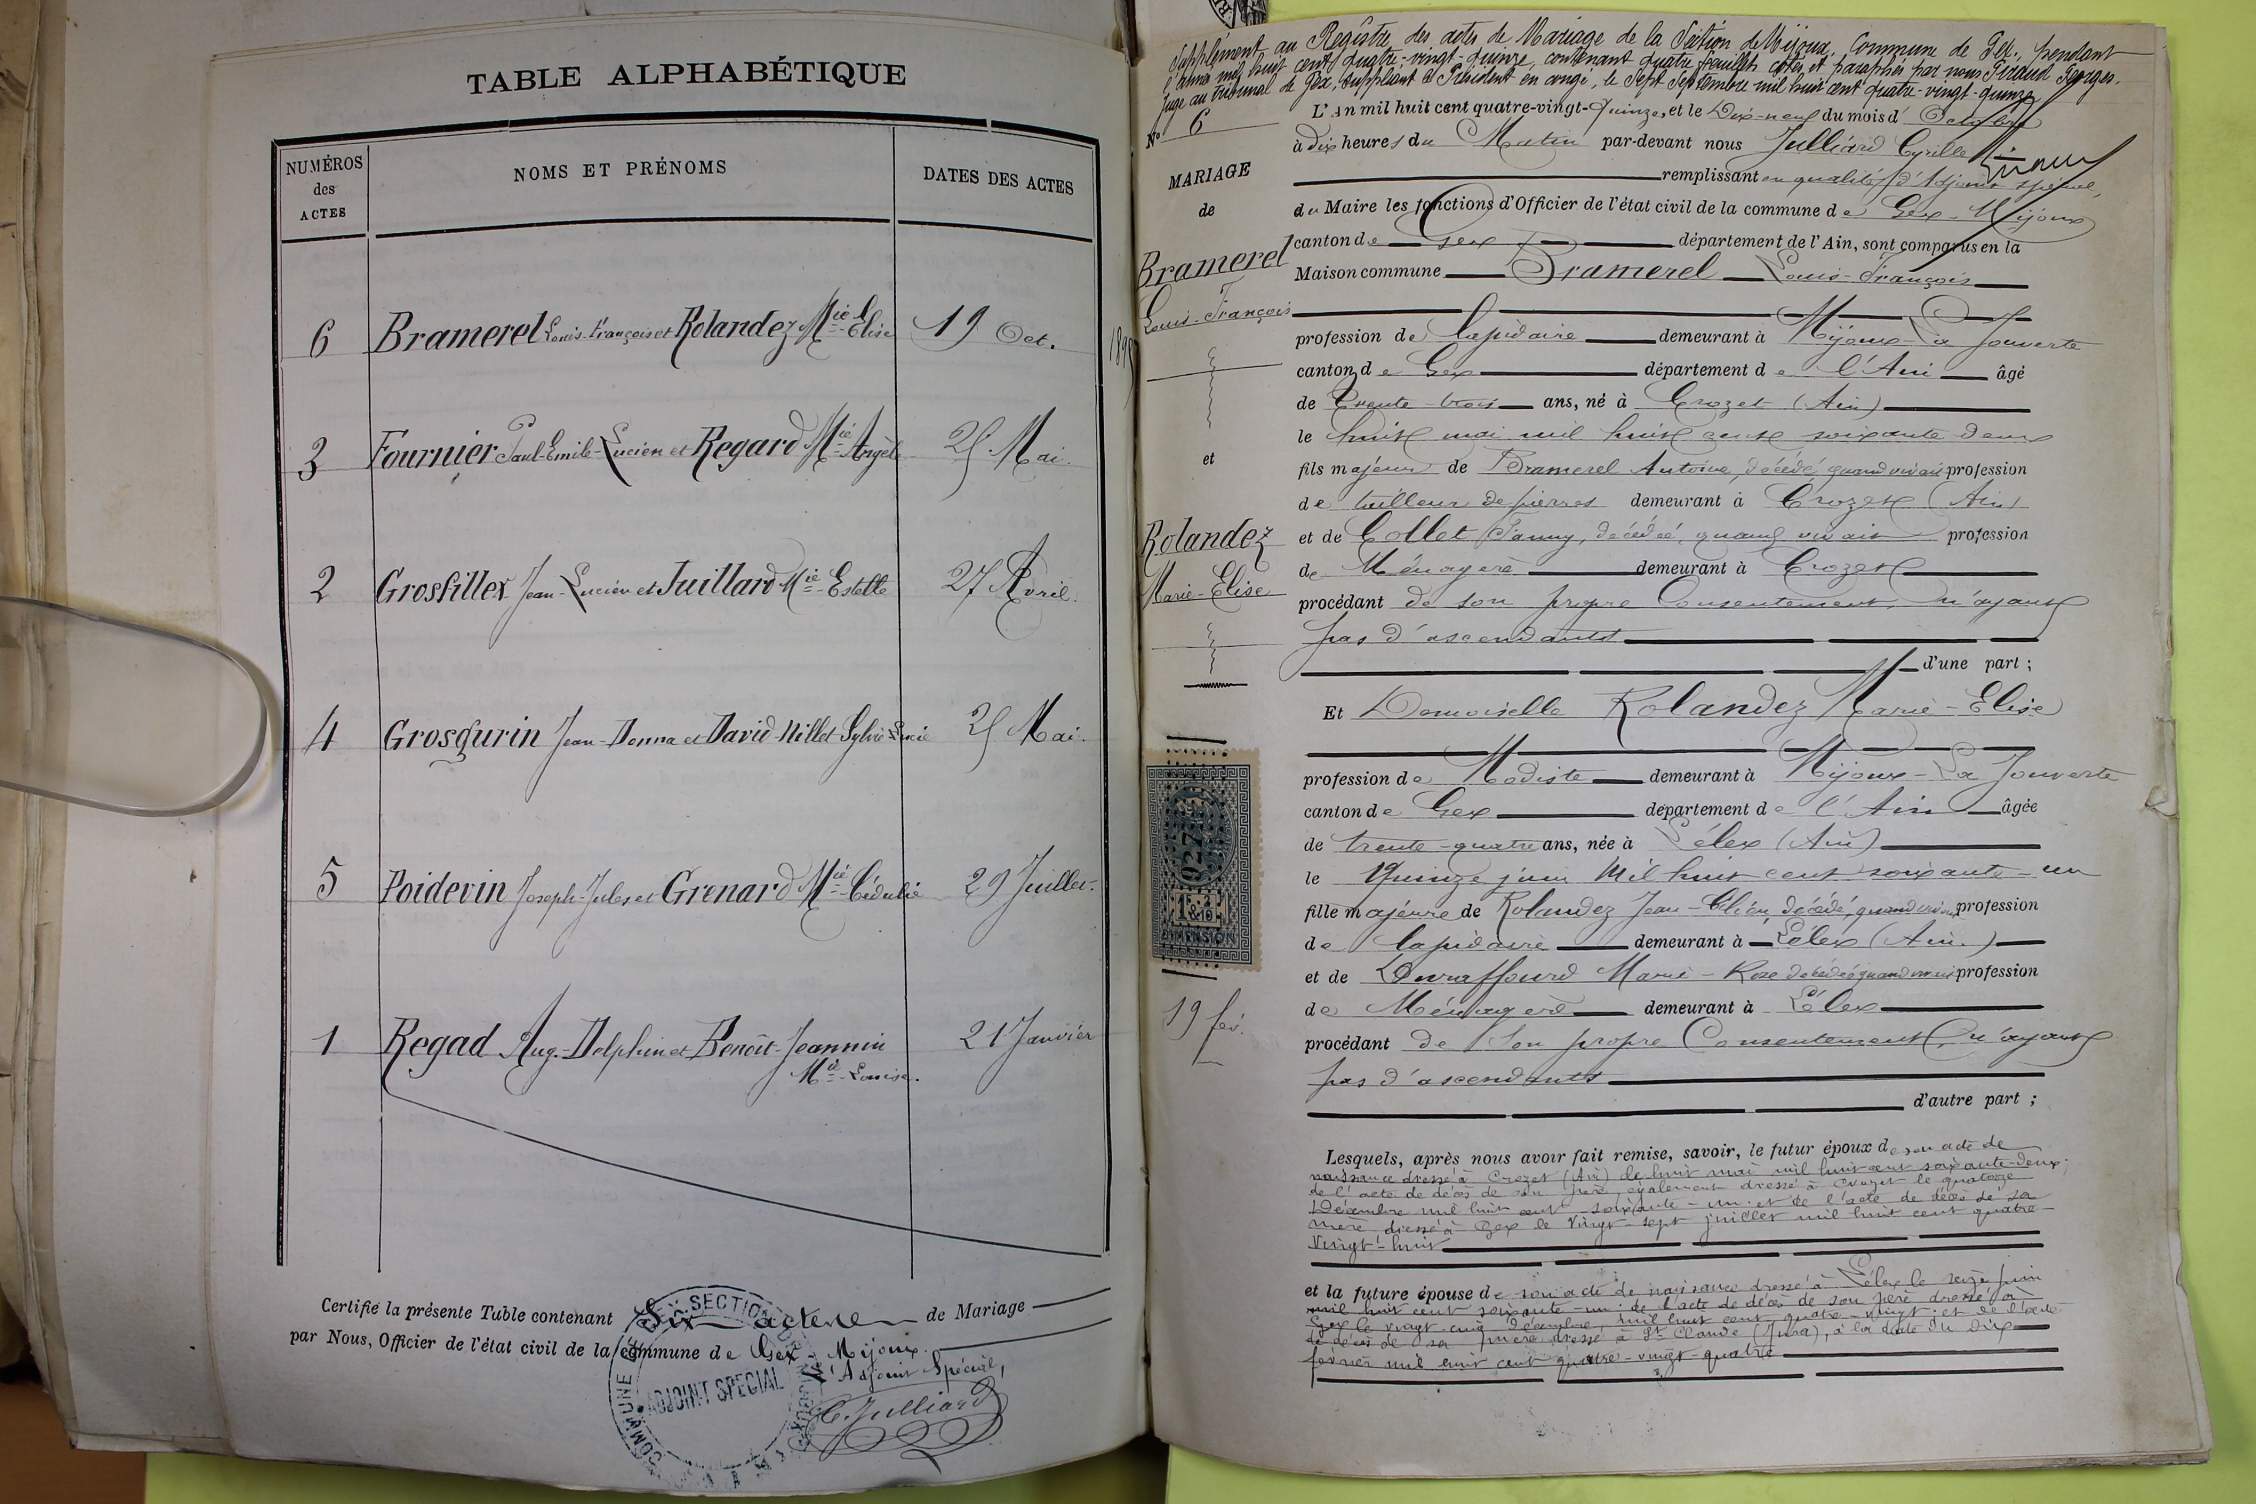 TABLE ALPHABÉTIQUE
NUMÉROS des ACTES
NOMS ET PRÉNOMS
DATES DES ACTES
6 Bramerel Louis-François et Rolandez Mie Elise 19 Oct. 1895
3 Fournier Paul-Emile-Lucien et Regard Mie Angèle 25 Mai.
2 Grosfillex Jean-Lucien et Juillard Mie Estelle 27 Avril.
4 Grosgurin Jean-Donna et David-Nillet Sylvie Lucie 25 Mai.
5 Poidevin Joseph-Jules et Grenard Mie Cédulie 29 Juillet.
1 Regad Aug.-Delphin et Benoît-Jeannin 21 Janvier
Mie Louise.
Certifié la présente Table contenant Six actes de Mariage
par Nous, Officier de l'état civil de la commune de Gex-Mijoux.
L'Adjoint Spécial,
C. Julliard
COMMUNE DE GEX SECTION DE MIJOUX
ADJOINT SPECIAL
Supplément au Registre des actes de Mariage de la Section de Mijoux, Commune de Gex, pendant
l'année mil huit cent quatre-vingt-quinze, contenant quatre feuillets cotés et paraphés par nous Giraud Georges.
Juge au tribunal de Gex, suppléant le Président en congé, le Sept Septembre mil huit cent quatre-vingt-quinze
No 6
MARIAGE
de
Bramerel
Louis-François
et
Rolandez
Marie-Elise
DIMENSION
19 fév.
L'An mil huit cent quatre-vingt-quinze, et le Dix-neuf du mois d'Octobre
à dix heures du Matin par-devant nous Julliard Cyrille
remplissant en qualité d'Adjoint spécial,
du Maire les fonctions d'Officier de l'état civil de la commune de Gex-Mijoux
canton de Gex département de l'Ain, sont comparus en la
Maison commune Bramerel Louis-François
profession de lapidaire demeurant à Mijoux-La Jouverte
canton de Gex département de l'Ain âgé
de trente-trois ans, né à Crozet (Ain)
le huit mai mil huit cent soixante deux
fils majeur de Bramerel Antoine, décédé, quand vivait profession
de tailleur de pierres demeurant à Crozet (Ain)
et de Collet Fanny, décédée, quand vivait profession
de Ménagère demeurant à Crozet
procédant de son propre Consentement, n'ayant
pas d'ascendants
d'une part ;
Et Demoiselle Rolandez Marie-Elise
profession de Modiste demeurant à Mijoux-La Jouverte
canton de Gex département de l'Ain âgée
de trente-quatre ans, née à Lélex (Ain)
le Quinze juin Mil huit cent soixante-un
fille majeure de Rolandez Jean-Célien, décédé, quand vivait profession
de lapidaire demeurant à Lélex (Ain.)
et de Duraffourd Marie-Rose décédée quand vivait profession
de Ménagère demeurant à Lélex
procédant de Son propre Consentement, n'ayant
pas d'ascendants
d'autre part ;
Lesquels, après nous avoir fait remise, savoir, le futur époux de son acte de
naissance dressé à Crozet (Ain) le huit mai mil huit cent soixante-deux;
de l'acte de décès de son père, également dressé à Crozet le quatorze
Décembre mil huit cent soixante-un; et de l'acte de décès de sa
mère, dressé à Gex le vingt-sept juillet mil huit cent quatre-
vingt-huit
et la future épouse de son acte de naissance dressé à Lélex le seize juin
mil huit cent soixante-un; de l'acte de décès de son père dressé à
Gex le vingt-cinq Décembre, mil huit cent quatre-vingt; et de l'acte
de décès de sa mère dressé à St Claude (Jura), à la date du Dix
février mil huit cent quatre-vingt-quatre